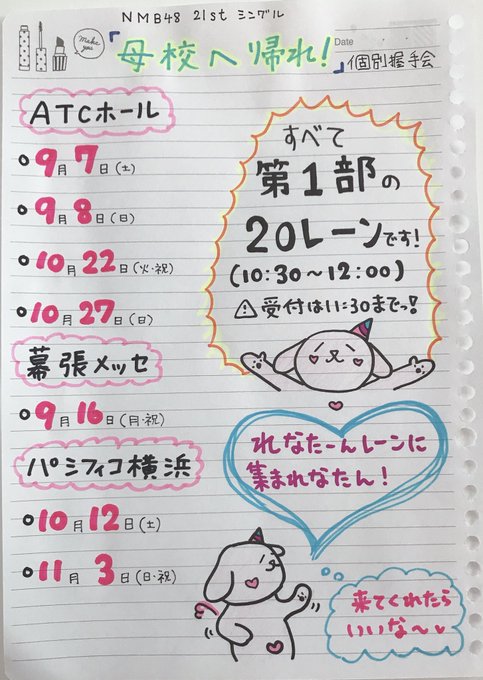 NMB48 21st シングル
Make you
「母校へ帰れ!」
Date
個別握手会
ATCホール
9月7日(土)
9月8日(日)
10月22日(火・祝)
10月27日(日)
幕張メッセ
9月16日(月・祝)
パシフィコ横浜
10月12日(土)
11月3日(日・祝)
すべて
第1部の
20レーンです!
(10:30〜12:00)
⚠受付は11:30までっ!
れなたーんレーンに
集まれなたん!
来てくれたら
いいな〜♥